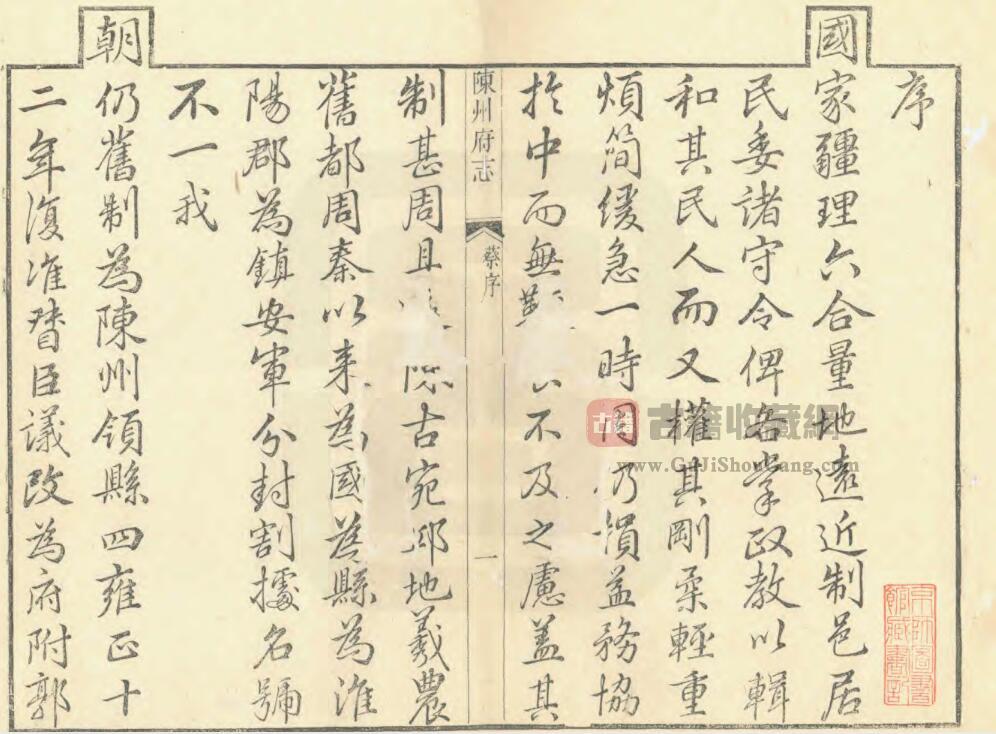 序
國家疆理六合量地遠近制邑居
民委諸守令俾各掌政教以輯
和其民人而又權其剛柔輕重
煩簡緩急一時因乃損益務協
於中而無 不及之慮蓋其
陳州府志 蔡序 一
制甚周且 陳古宛邱地羲農
舊都周秦以来為國為縣為淮
陽郡為鎮安軍分封割據名號
不一我
朝仍舊制為陳州領縣四雍正十
二年復准督臣議改為府附郭
古籍 古籍收藏網
www.GuJiShouCang.com
京師圖書
館藏書記